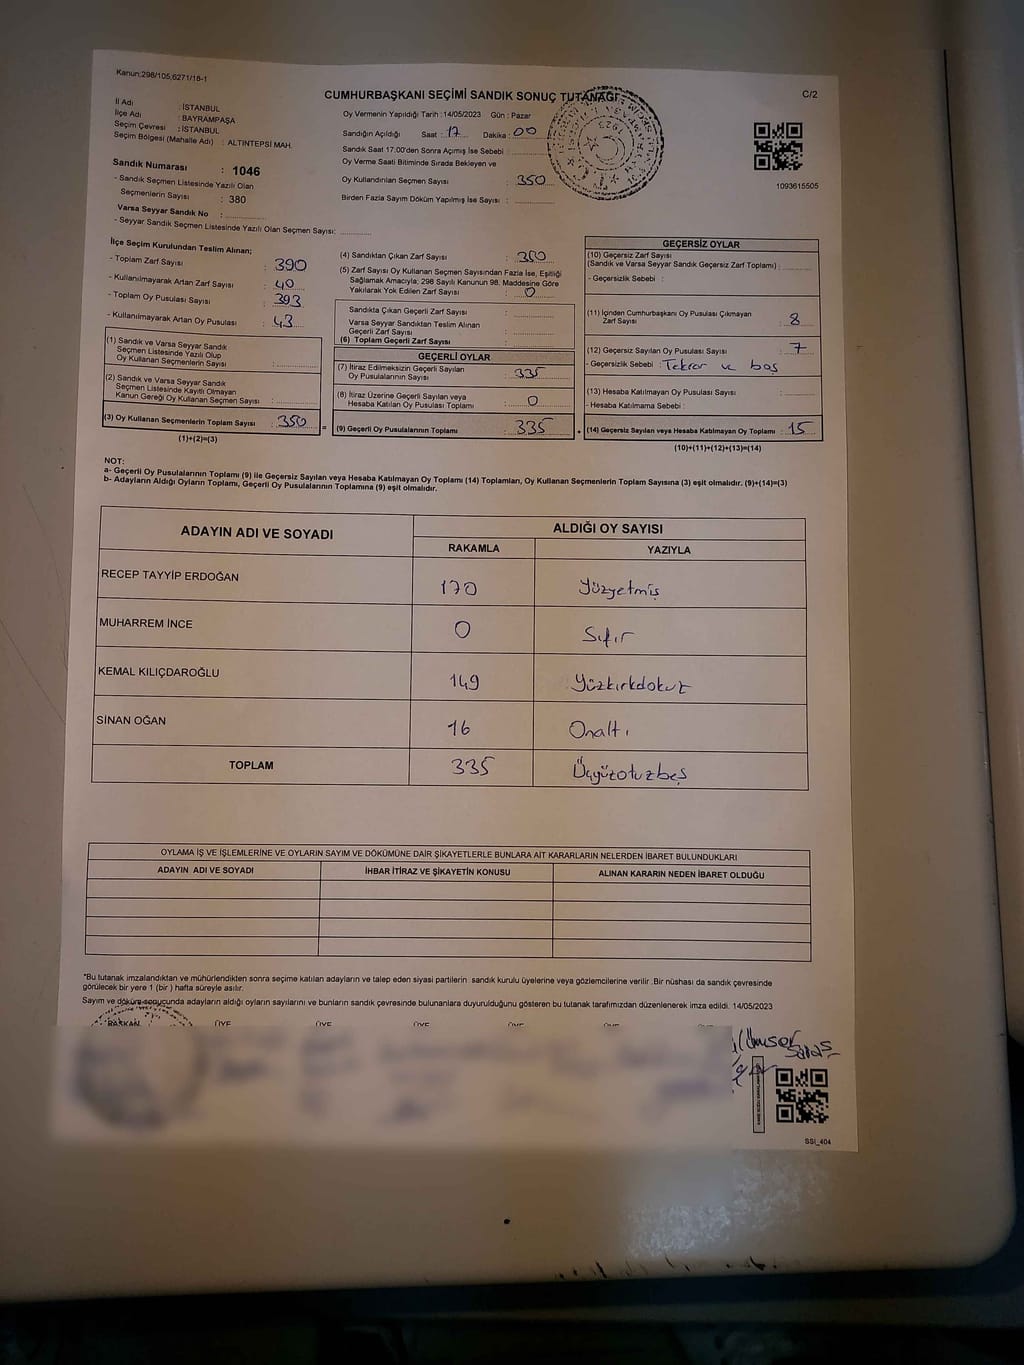 Kanun:298/105,6271/18-1
CUMHURBAŞKANI SEÇİMİ SANDIK SONUÇ TUTANAĞI
C/2
İl Adı : İSTANBUL
İlçe Adı : BAYRAMPAŞA
Seçim Çevresi : İSTANBUL
Seçim Bölgesi (Mahalle Adı) : ALTINTEPSİ MAH.
Sandık Numarası : 1046
- Sandık Seçmen Listesinde Yazılı Olan
Seçmenlerin Sayısı : 380
Varsa Seyyar Sandık No :
- Seyyar Sandık Seçmen Listesinde Yazılı Olan Seçmen Sayısı:
Oy Vermenin Yapıldığı Tarih : 14/05/2023 Gün : Pazar
Sandığın Açıldığı Saat : 17 Dakika : 00
Sandık Saat 17:00'den Sonra Açımış İse Sebebi :
Oy Verme Saati Bitiminde Sırada Bekleyen ve
Oy Kullandırılan Seçmen Sayısı : 350
Birden Fazla Sayım Döküm Yapılmış İse Sayısı :
1093615505
İlçe Seçim Kurulundan Teslim Alınan;
- Toplam Zarf Sayısı : 390
- Kullanılmayarak Artan Zarf Sayısı : 40
- Toplam Oy Pusulası Sayısı : 393
- Kullanılmayarak Artan Oy Pusulası : 43
(1) Sandık ve Varsa Seyyar Sandık
Seçmen Listesinde Yazılı Olup
Oy Kullanan Seçmenlerin Sayısı :
(2) Sandık ve Varsa Seyyar Sandık
Seçmen Listesinde Kayıtlı Olmayan
Kanun Gereği Oy Kullanan Seçmen Sayısı :
(3) Oy Kullanan Seçmenlerin Toplam Sayısı : 350
(1)+(2)=(3)
(4) Sandıktan Çıkan Zarf Sayısı : 350
(5) Zarf Sayısı Oy Kullanan Seçmen Sayısından Fazla İse, Eşitliği
Sağlamak Amacıyla; 298 Sayılı Kanunun 98. Maddesine Göre
Yakılarak Yok Edilen Zarf Sayısı : 0
Sandıkta Çıkan Geçerli Zarf Sayısı :
Varsa Seyyar Sandıktan Teslim Alınan
Geçerli Zarf Sayısı :
(6) Toplam Geçerli Zarf Sayısı :
GEÇERLİ OYLAR
(7) İtiraz Edilmeksizin Geçerli Sayılan
Oy Pusulalarının Sayısı : 335
(8) İtiraz Üzerine Geçerli Sayılan veya
Hesaba Katılan Oy Pusulası Toplamı : 0
(9) Geçerli Oy Pusulalarının Toplamı : 335
GEÇERSİZ OYLAR
(10) Geçersiz Zarf Sayısı
(Sandık ve Varsa Seyyar Sandık Geçersiz Zarf Toplamı) :
- Geçersizlik Sebebi :
(11) İçinden Cumhurbaşkanı Oy Pusulası Çıkmayan
Zarf Sayısı : 8
(12) Geçersiz Sayılan Oy Pusulası Sayısı : 7
- Geçersizlik Sebebi : Tekrar ve boş
(13) Hesaba Katılmayan Oy Pusulası Sayısı :
- Hesaba Katılmama Sebebi :
(14) Geçersiz Sayılan veya Hesaba Katılmayan Oy Toplamı : 15
(10)+(11)+(12)+(13)=(14)
NOT:
a- Geçerli Oy Pusulalarının Toplamı (9) ile Geçersiz Sayılan veya Hesaba Katılmayan Oy Toplamı (14) Toplamları, Oy Kullanan Seçmenlerin Toplam Sayısına (3) eşit olmalıdır. (9)+(14)=(3)
b- Adayların Aldığı Oyların Toplamı, Geçerli Oy Pusulalarının Toplamına (9) eşit olmalıdır.
ADAYIN ADI VE SOYADI ALDIĞI OY SAYISI
RAKAMLA YAZIYLA
RECEP TAYYİP ERDOĞAN 170 Yüzyetmiş
MUHARREM İNCE 0 Sıfır
KEMAL KILIÇDAROĞLU 149 Yüzkırkdokuz
SİNAN OĞAN 16 Onaltı
TOPLAM 335 Üçyüzotuzbeş
OYLAMA İŞ VE İŞLEMLERİNE VE OYLARIN SAYIM VE DÖKÜMÜNE DAİR ŞİKAYETLERLE BUNLARA AİT KARARLARIN NELERDEN İBARET BULUNDUKLARI
ADAYIN ADI VE SOYADI İHBAR İTİRAZ VE ŞİKAYETİN KONUSU ALINAN KARARIN NEDEN İBARET OLDUĞU
*Bu tutanak imzalandıktan ve mühürlendikten sonra seçime katılan adayların ve talep eden siyasi partilerin sandık kurulu üyelerine veya gözlemcilerine verilir .Bir nüshası da sandık çevresinde
görülecek bir yere 1 (bir ) hafta süreyle asılır.
Sayım ve döküm sonucunda adayların aldığı oyların sayılarını ve bunların sandık çevresinde bulunanlara duyurulduğunu gösteren bu tutanak tarafımızdan düzenlenerek imza edildi. 14/05/2023
BAŞKAN ÜYE ÜYE ÜYE ÜYE ÜYE
SSI_404